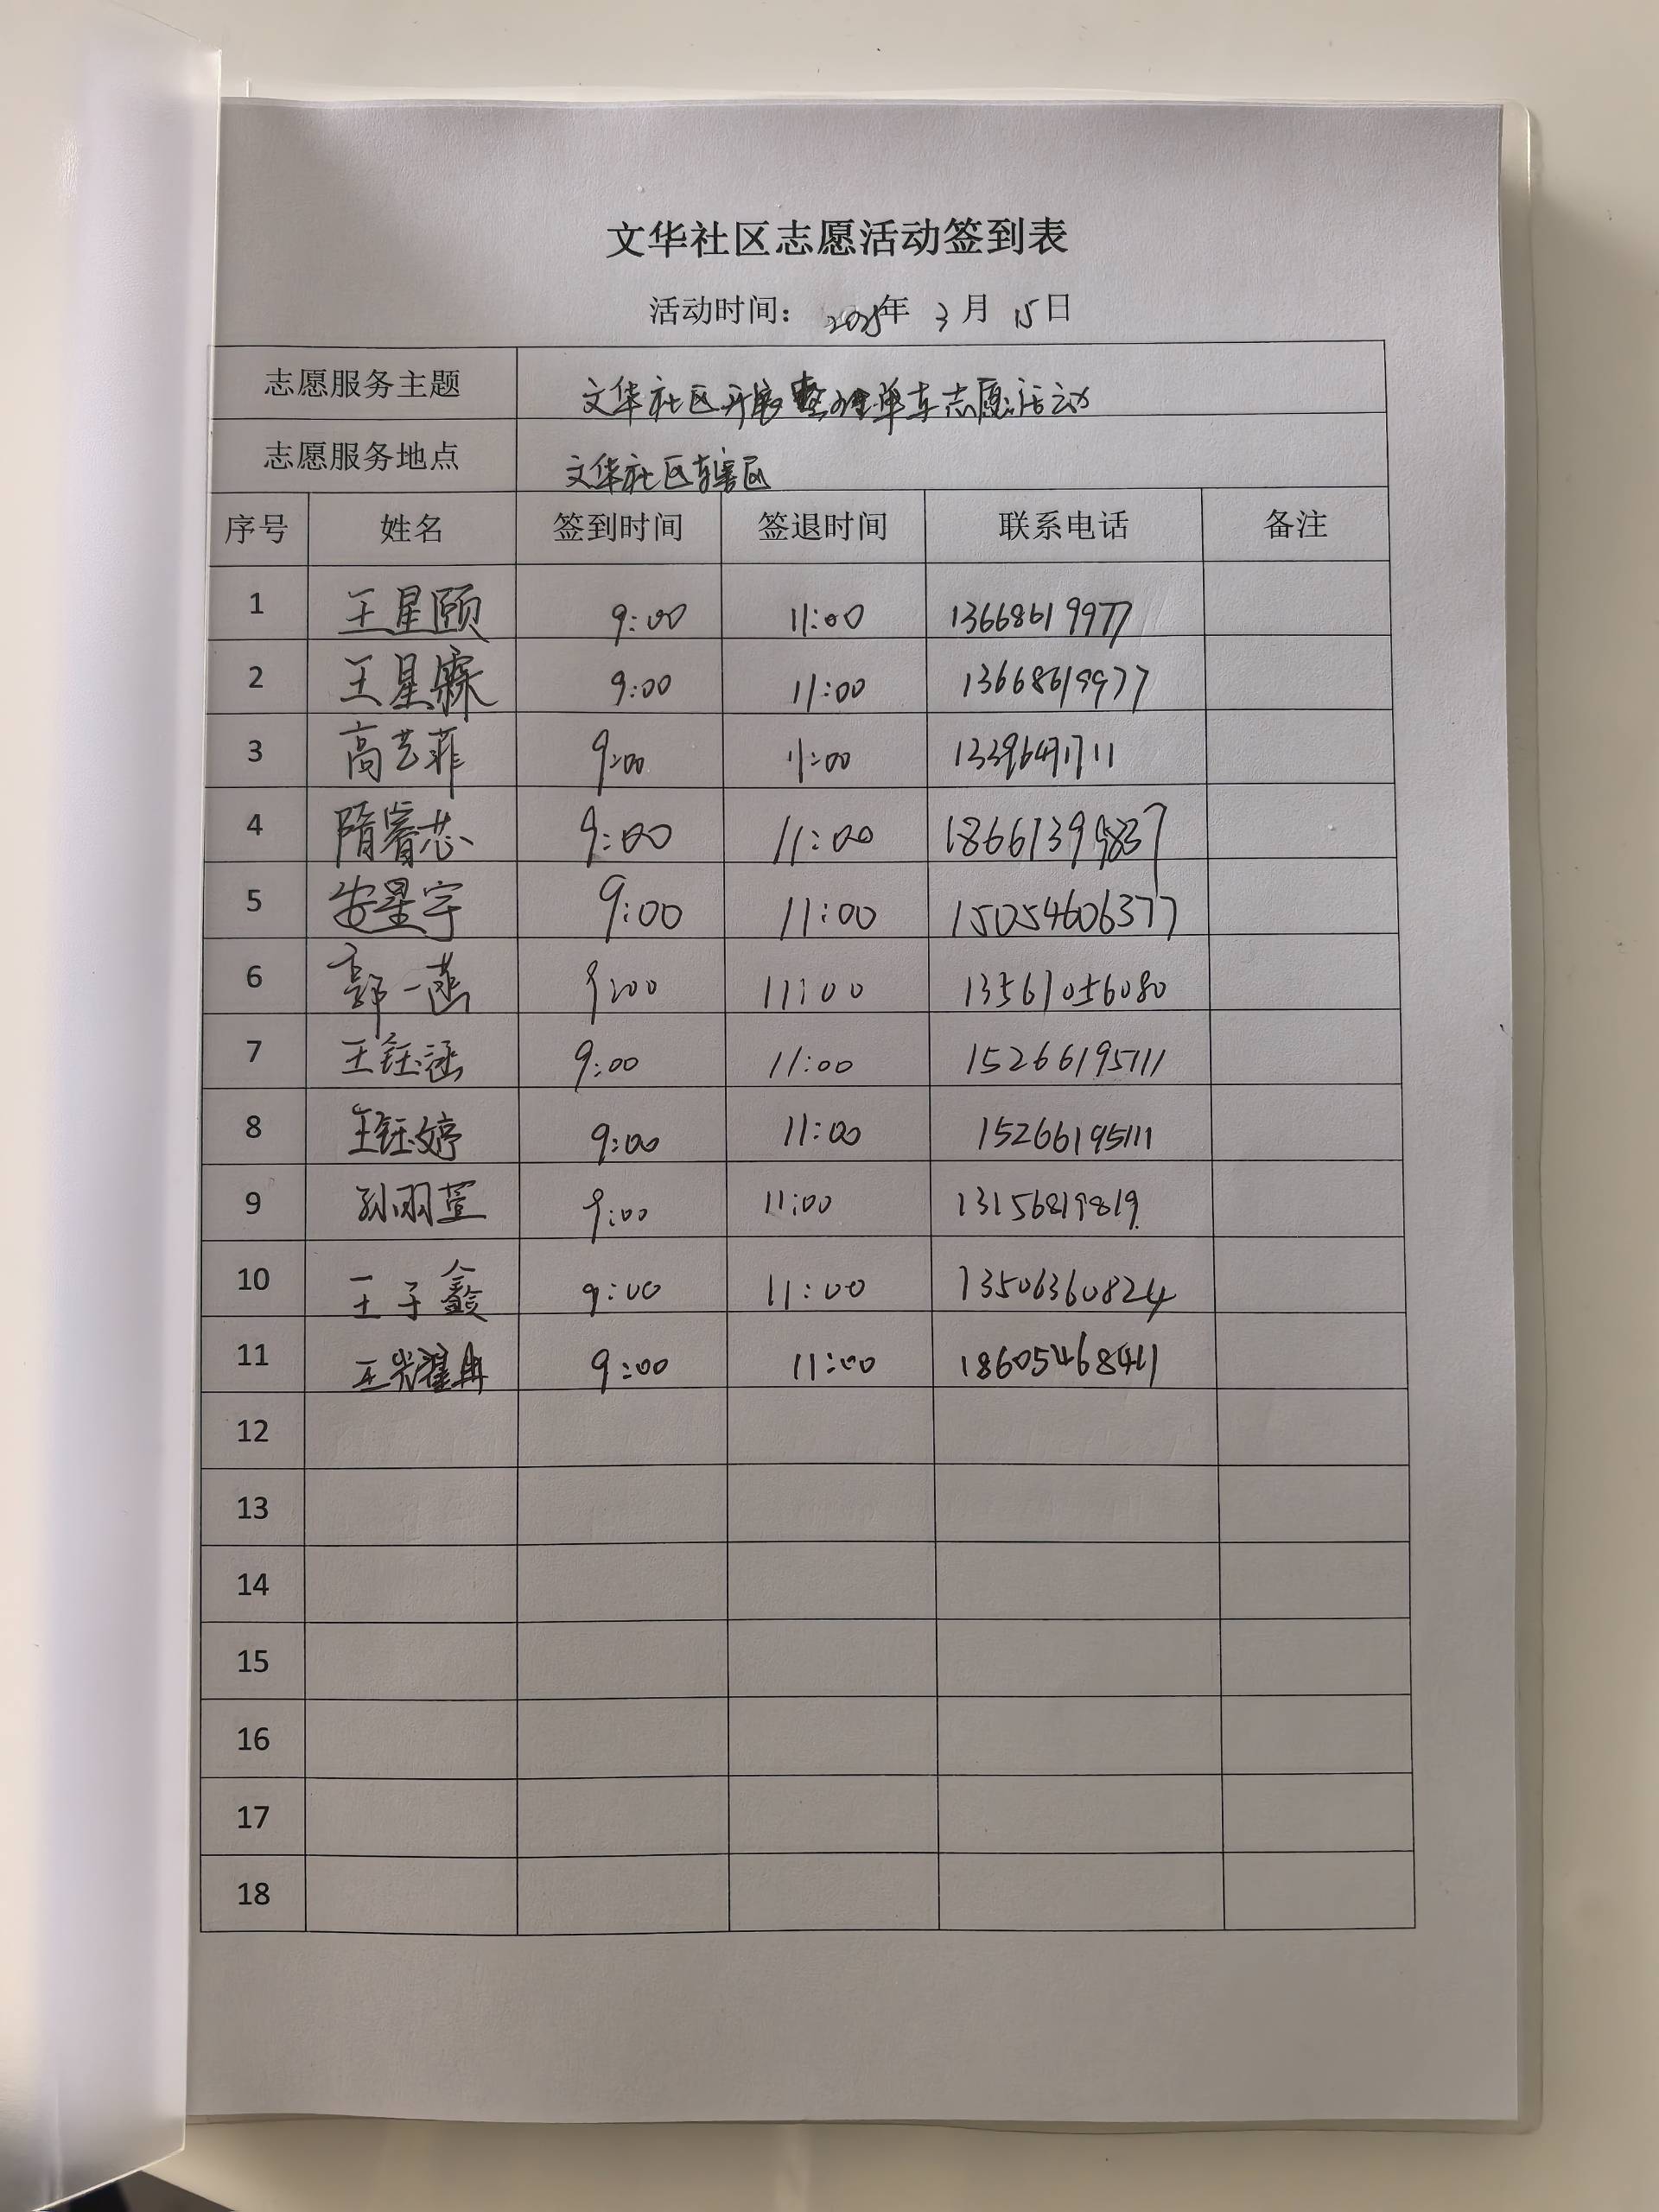 文华社区志愿活动签到表
活动时间： 2025年 3 月 15日
志愿服务主题 文华社区开展整理单车志愿活动
志愿服务地点 文华社区辖区
序号 姓名 签到时间 签退时间 联系电话 备注
1 王星颐 9:00 11:00 13668619977
2 王星霖 9:00 11:00 13668619977
3 高艺菲 9:00 11:00
4 隋睿芯 9:00 11:00
5 安星宇 9:00 11:00 15054606377
6 郭一菡 9:00 11:00 13561056080
7 王钰涵 9:00 11:00 15266195111
8 王钰婷 9:00 11:00 15266195111
9 孙羽萱 9:00 11:00 13156819819
10 王子鑫 9:00 11:00 13506360824
11 王耀冉 9:00 11:00 18605468411
12
13
14
15
16
17
18